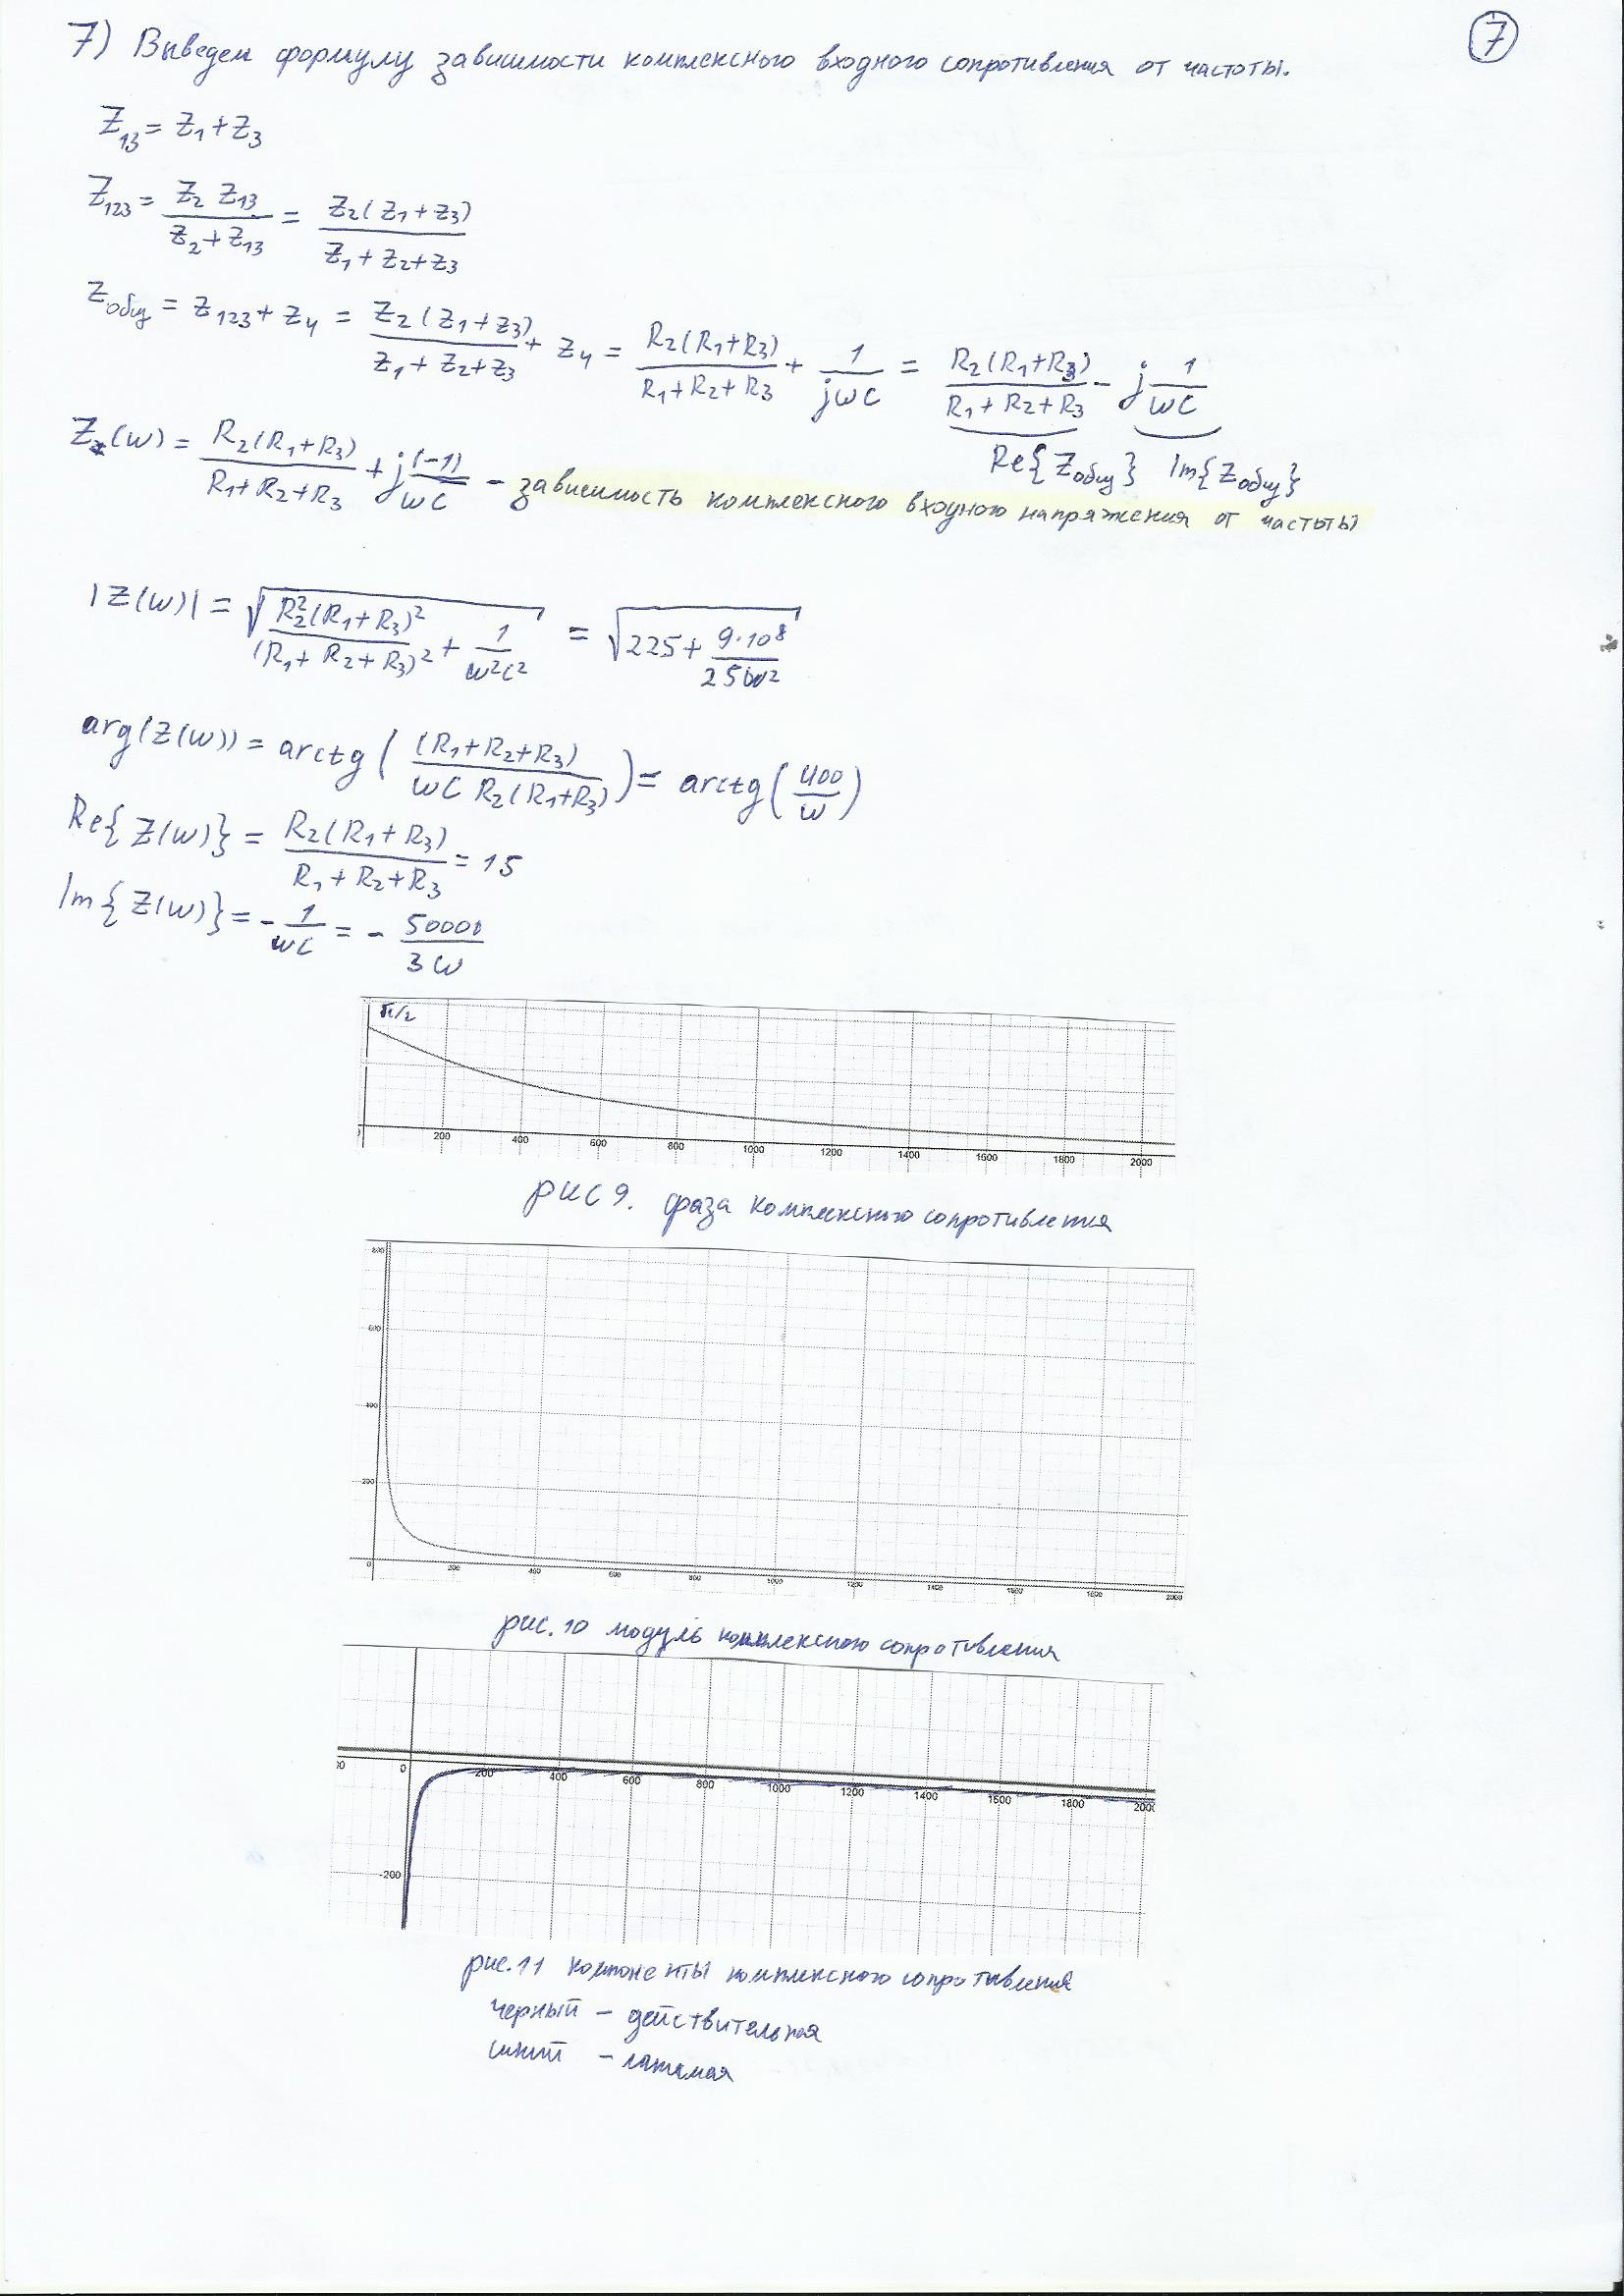 7
7) Выведем формулу зависимости комплексного входного сопротивления от частоты.
Z₁₃ = Z₁ + Z₃
Z₁₂₃ = (Z₂ Z₁₃)/(Z₂ + Z₁₃) = (Z₂(Z₁+Z₃))/(Z₁+Z₂+Z₃)
Zобщ = Z₁₂₃ + Z₄ = (Z₂(Z₁+Z₃))/(Z₁+Z₂+Z₃) + Z₄ = (R₂(R₁+R₃))/(R₁+R₂+R₃) + 1/(jωC) = (R₂(R₁+R₃))/(R₁+R₂+R₃) - j 1/(ωC)
Re{Zобщ} Im{Zобщ}
Z(ω) = (R₂(R₁+R₃))/(R₁+R₂+R₃) + j (-1)/(ωC) - зависимость комплексного входного напряжения от частоты
|Z(ω)| = √((R₂²(R₁+R₃)²)/(R₁+R₂+R₃)² + 1/(ω²C²)) = √(225 + (9·10⁸)/(25ω²))
arg(Z(ω)) = arctg((R₁+R₂+R₃)/(ωC R₂(R₁+R₃))) = arctg(400/ω)
Re{Z(ω)} = (R₂(R₁+R₃))/(R₁+R₂+R₃) = 15
Im{Z(ω)} = - 1/(ωC) = - 50000/(3ω)
π/2
200 400 600 800 1000 1200 1400 1600 1800 2000
рис 9. фаза комплексного сопротивления
800
600
400
200
0 200 400 600 800 1000 1200 1400 1600 1800 2000
рис. 10 модуль комплексного сопротивления
0 200 400 600 800 1000 1200 1400 1600 1800 2000
-200
рис. 11 компоненты комплексного сопротивления
черный - действительная
синий - мнимая